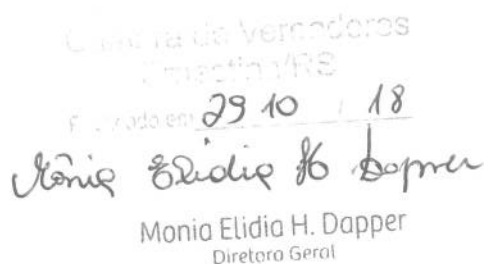 Câmara de Vereadores
em 29 10 / 18
Mônia Elidia H Dapper
Monia Elidia H. Dapper
Diretora Geral